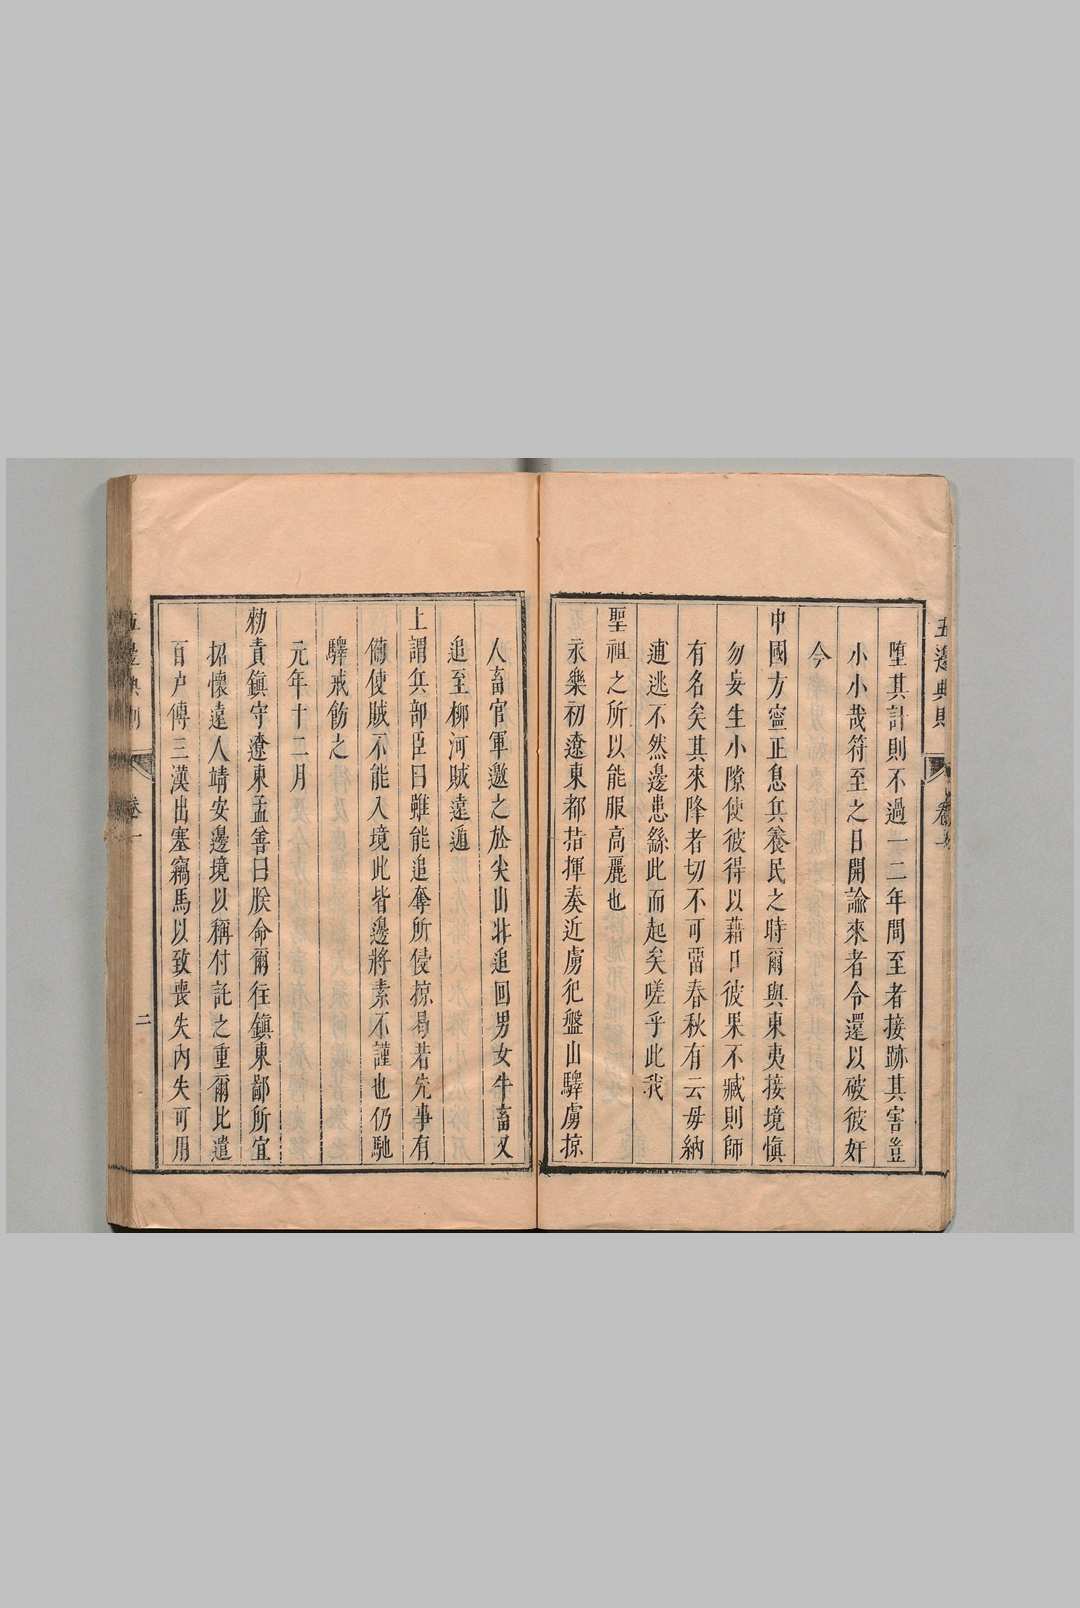 五邊典則 卷一
墮其計則不過一二年間至者接跡其害豈
小小哉符至之日開諭來者令還以破彼奸
今
中國方寧正息兵養民之時爾與東夷接境慎
勿妄生小隙使彼得以藉口彼果不臧則師
有名矣其來降者切不可留春秋有云毋納
逋逃不然邊患繇此而起矣嗟乎此我
聖祖之所以能服高麗也
永樂初遼東都指揮奏近虜犯盤山驛虜掠
人畜官軍邀之於尖山北追回男女牛畜又
追至柳河賊遠遁
上謂兵部臣曰雖能追奪所侵掠曷若先事有
備使賊不能入境此皆邊將素不謹也仍馳
驛戒飭之
元年十二月
勑責鎮守遼東孟善曰朕命爾往鎮東鄙所宜
招懷遠人靖安邊境以稱付託之重爾比遣
百户傅三漢出塞竊馬以致喪失內失可用
五邊典則 卷一 二